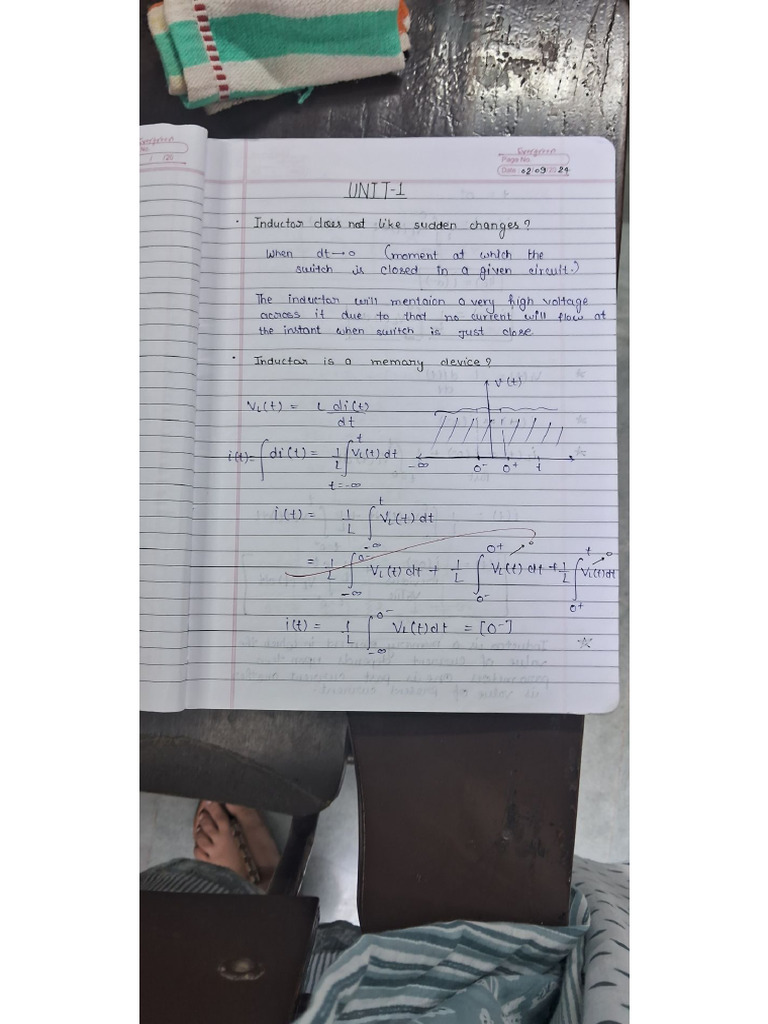 Evergreen
No.
/ /20
Evergreen
Page No.
Date 02/09/2024
UNIT-1
• Inductor does not like sudden changes?
When dt→0 (moment at which the
switch is closed in a given circuit.)
The inductor will mentaion a very high voltage
across it due to that no current will flow at
the instant when switch is just close
• Inductor is a memary device?
V(t)
VL(t) = L di(t)/dt
i(t)= ∫ di(t) = 1/L ∫ t=-∞ t VL(t) dt
-∞ 0- 0+ t
i(t) = 1/L ∫ -∞ t VL(t) dt
= 1/L ∫ -∞ 0- VL(t) dt + 1/L ∫ 0- 0+ VL(t) dt →0 + 1/L ∫ 0+ t VL(t) dt →0
i(t) = 1/L ∫ -∞ 0- VL(t) dt = [0-]